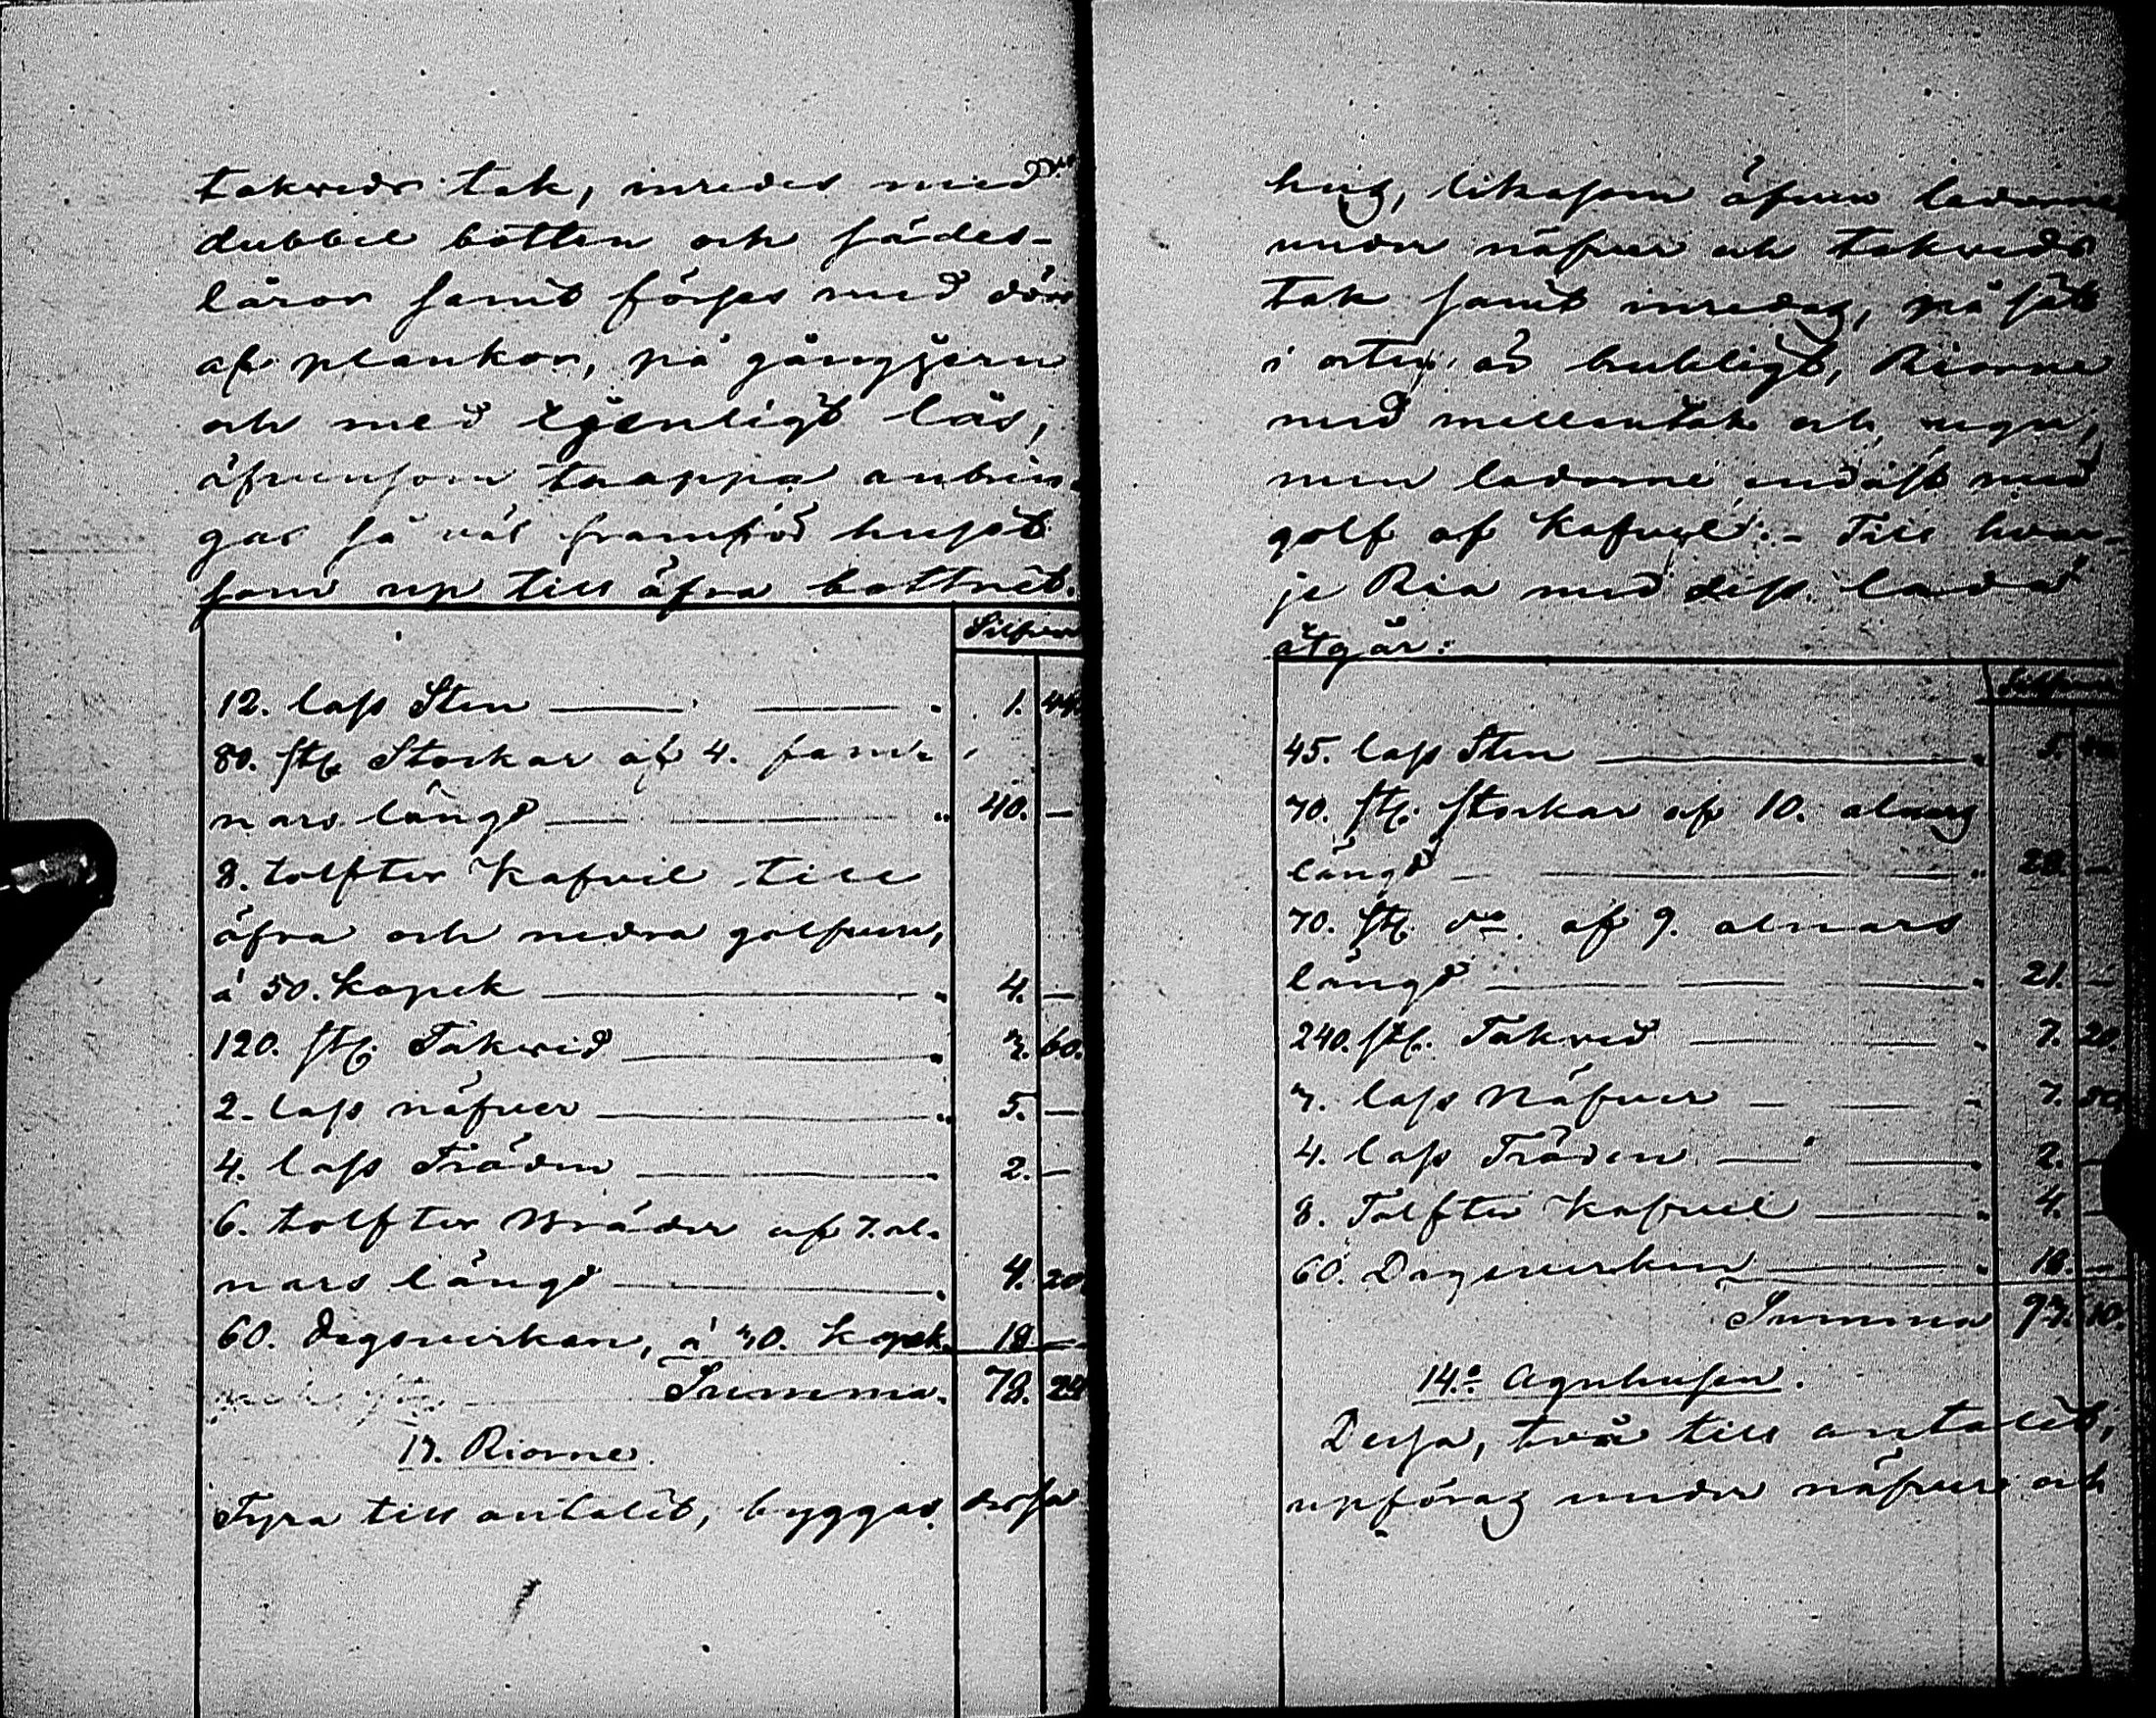 takveds tak, inredes med
dubbel botten och sädes-
lårar samt förses med dörr
af plankor, på gångjern
och med tjenligt lås,
äfvensom trappa anbrin-
gas så väl framför huset
som up till öfra bottnet.
Silfver
12. lass Sten — — 1. 44.
80. st. Stockar af 4. fam-
nars längd — — 40. —
8. tolfter Kafvel till
öfra och nedra golfven,
á 50. kopek — 4. —
120. st. Takved — 3. 60.
2. lass näfver — 5. —
4. lass Träden — 2. —
6. tolfter Bräder af 7. al-
nars längd — 4. 20.
60. dagsverken, á 30. kopek 18 —
Summa. 78. 24
13. Riorne.
Fyra till antalet, byggas dessa
hus, likasom äfven ladorne
under näfver och takveds
tak samt inredas, på sät
i orten är brukligt, Riorne
med mellantak och ugn,
men ladorne endast med
golf af Kafvel. - Till hvar-
je Ria med dess lada
åtgår:
Silfver
45. lass Sten — 5.
70. st. stockar af 10. alnars
längd — — 28. —
70. st. do. af 9. alnars
längd — — — 21. —
240. st. Takved — — 7. 20.
3. lass Näfver — — 7. 50.
4. lass Träden — — 2. —
8. Tolfter Kafvel — 4. —
60. Dagsverken — 18. —
Summa 93. 10.
14.o Agnhusen.
Dessa, två till antalet,
upföras under näfver och